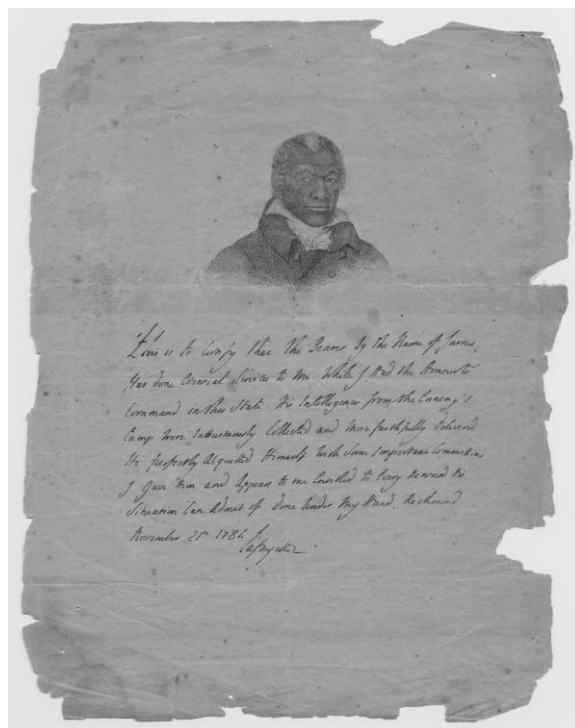 This is to Certify that the Bearer By the Name of James
Has done Essential Services to me While I Had the Honour to
Command in this State. His Intelligences from the Ennemy's
Camp were Industriously Collected and More faithfully delivered
He perfectly Acquitted Himself with Some Important Commissions
I Gave Him and Appears to me Entitled to Every Reward his
Situation Can Admit of. done Under My Hand, Richmond
November 21st 1784
Lafayette